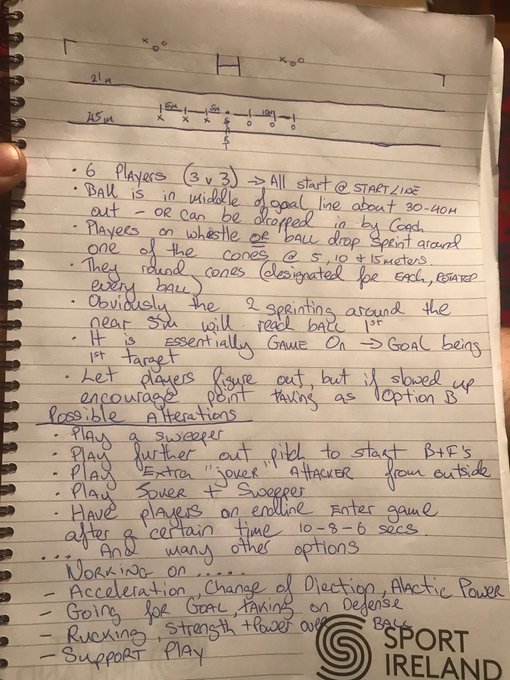 x o o
x o o
H
21m
45m
15m
5m
10m
x x x o o o
• 6 PLAYERS (3 v 3) → ALL start @ STARTLINE
• BALL is in middle of goal line about 30-40M
out - OR can be dropped in by COACH
• Players on whistle OR BALL drop sprint around
one of the cones @ 5, 10 + 15 meters
• They round cones (designated for EACH, ROTATED
every BALL)
• Obviously the 2 sprinting around the
near 5m will reach ball 1st
• It is ESSENTIALLY GAME ON → GOAL being
1st target
• Let players figure out, but if slowed up
encourage point taking as Option B
Possible Alterations
• PLAY a sweeper
• PLAY further out pitch to start B+F's
• PLAY Extra "joker" ATTACKER from outside
• PLAY Joker + Sweeper
• Have players on endline Enter game
after a certain time 10-8-6 secs
.... And many other options
Working on .....
- Acceleration, Change of Diection, Alactic Power
- Going for GOAL, taking on Defense
- Rucking, Strength + Power over BALL
- Support PLAY
SPORT
IRELAND